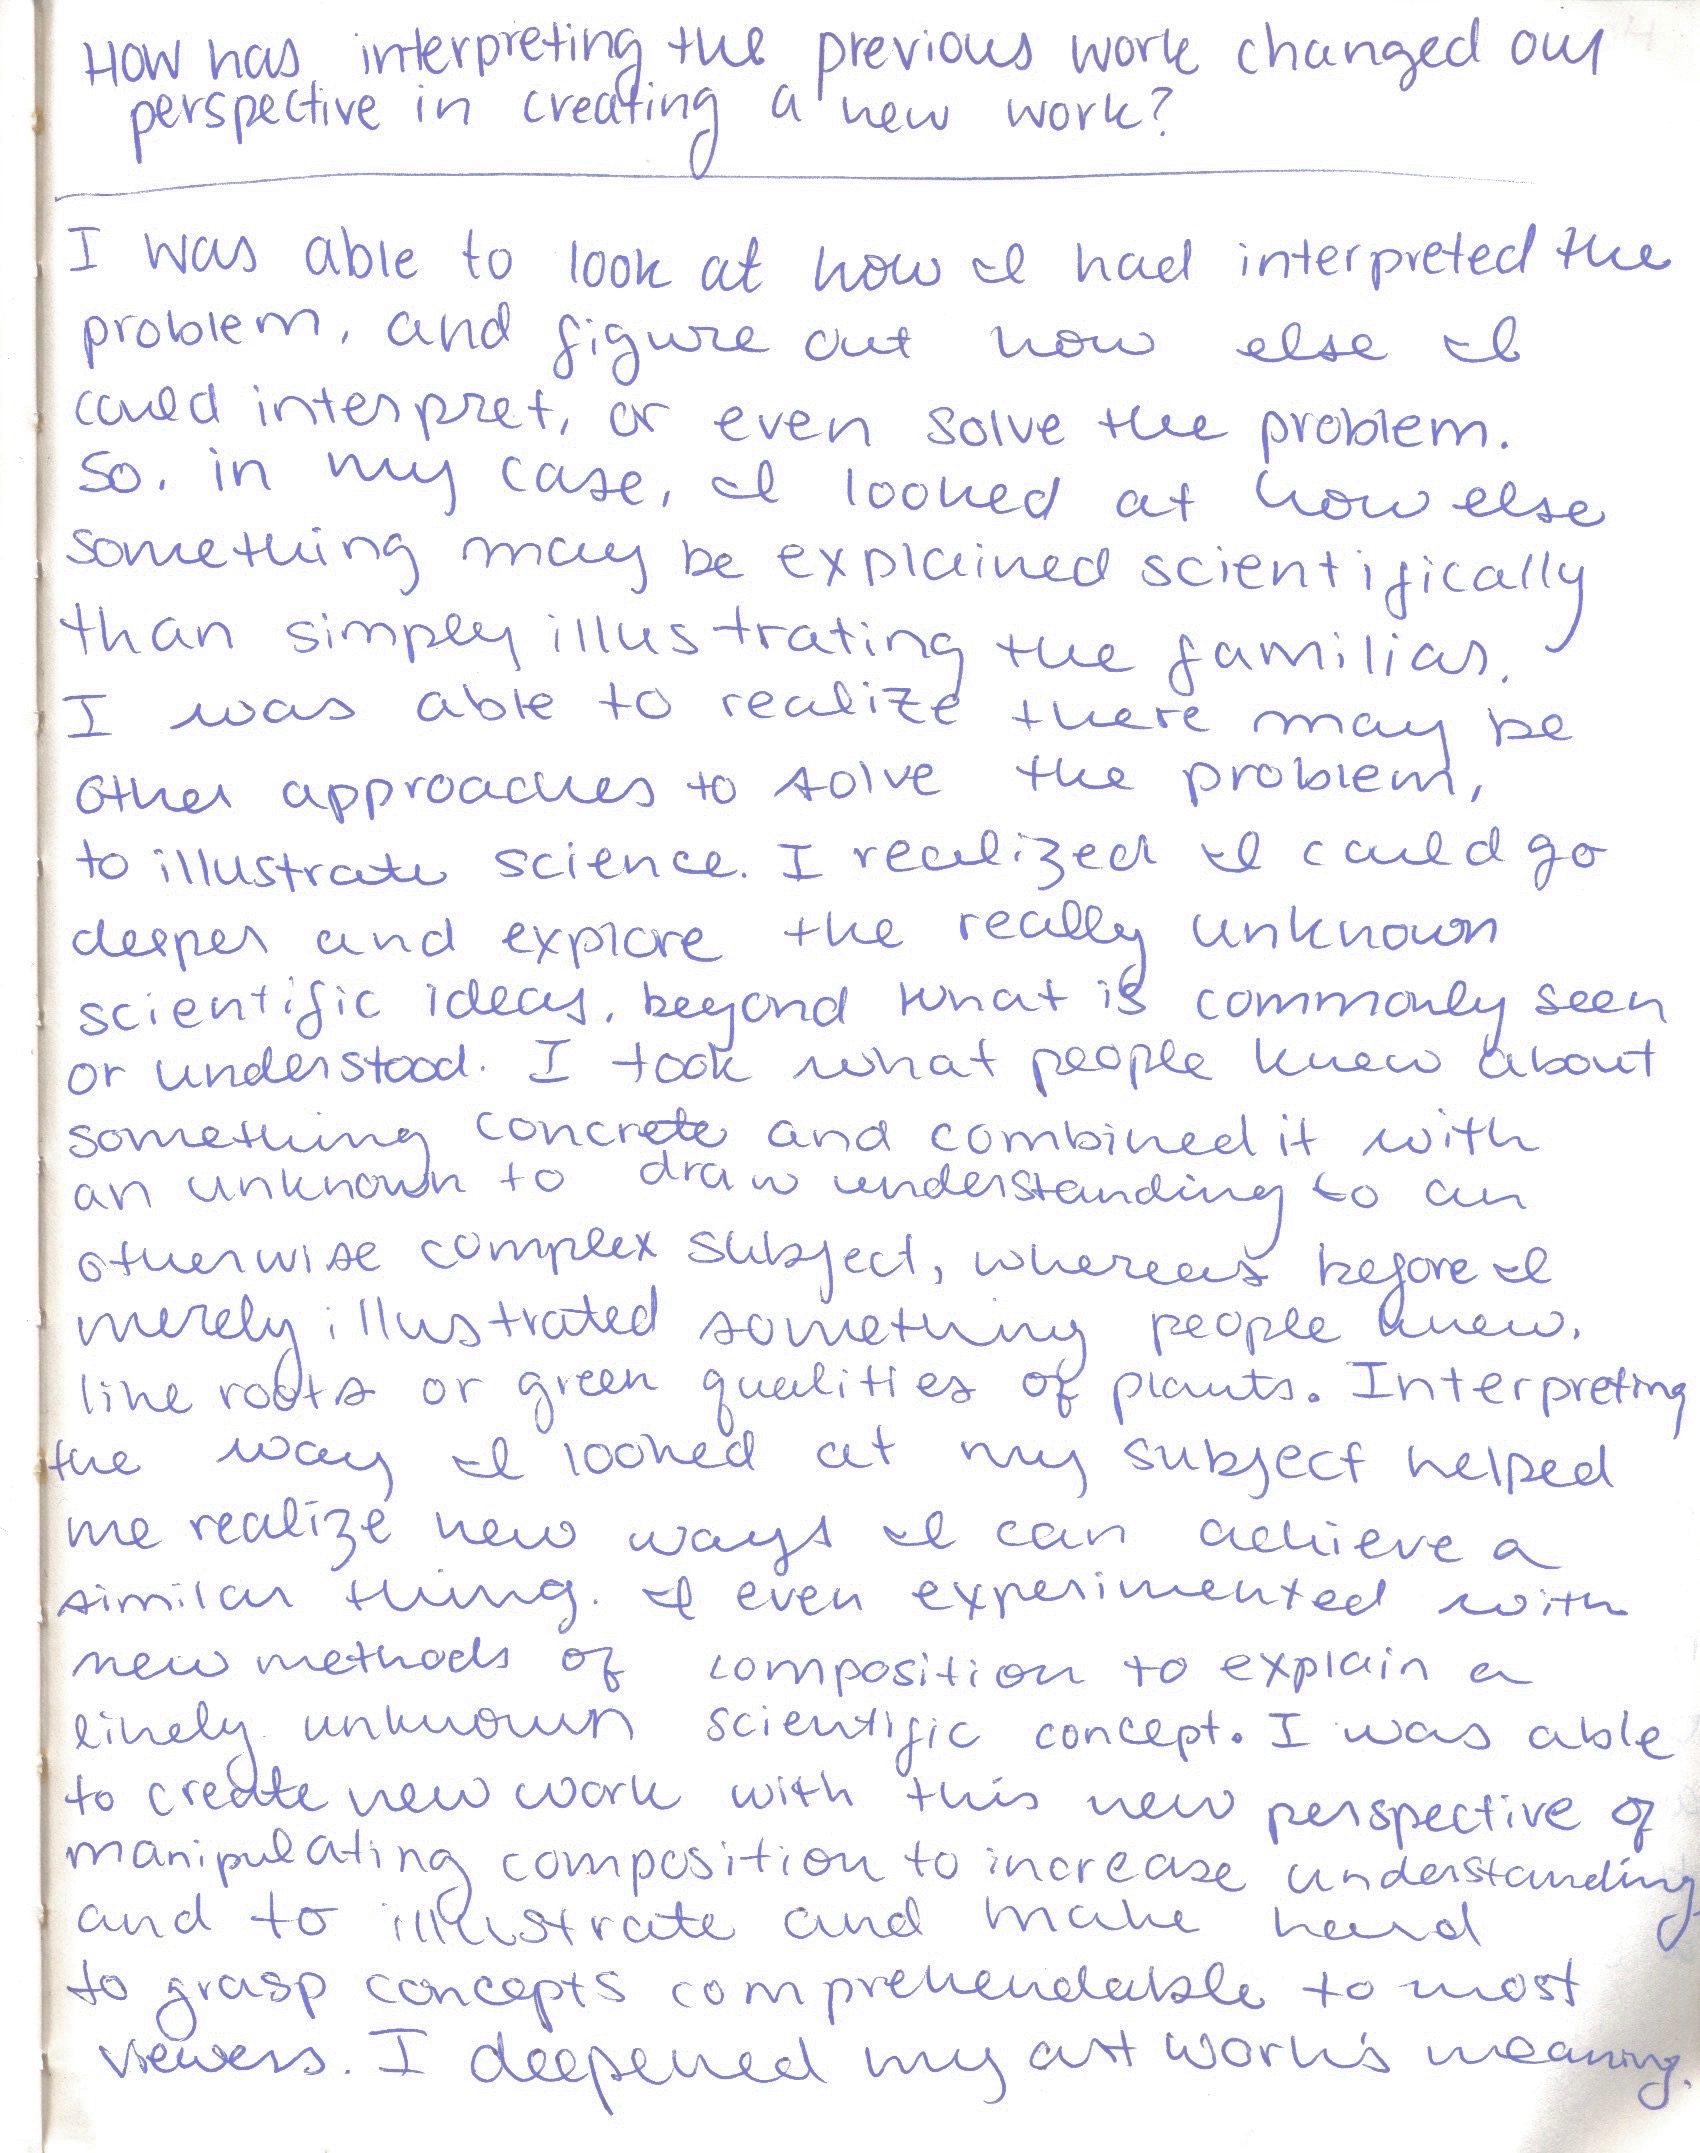 How has interpreting the previous work changed our
perspective in creating a new work?
I was able to look at how I had interpreted the
problem, and figure out how else I
could interpret, or even solve the problem.
So, in my case, I looked at how else
something may be explained scientifically
than simply illustrating the familiar.
I was able to realize there may be
other approaches to solve the problem,
to illustrate science. I realized I could go
deeper and explore the really unknown
scientific ideas, beyond what is commonly seen
or understood. I took what people knew about
something concrete and combined it with
an unknown to draw understanding to an
otherwise complex subject, whereas before I
merely illustrated something people knew,
like roots or green qualities of plants. Interpreting
the way I looked at my subject helped
me realize new ways I can achieve a
similar thing. I even experimented with
new methods of composition to explain a
likely unknown scientific concept. I was able
to create new work with this new perspective of
manipulating composition to increase understanding
and to illustrate and make hard
to grasp concepts comprehendable to most
viewers. I deepened my art work's meaning.